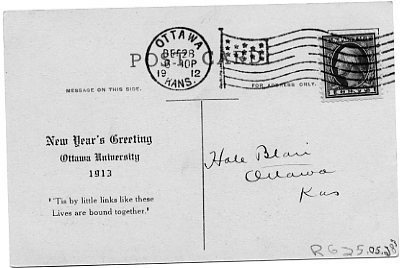 OTTAWA
DEC 28
8-30P
1912
KANS.
POST CARD
MESSAGE ON THIS SIDE.
FOR ADDRESS ONLY.
New Year's Greeting
Ottawa University
1913
"'Tis by little links like these
Lives are bound together."
Hale Blair
Ottawa
Kas
RG25.05.28